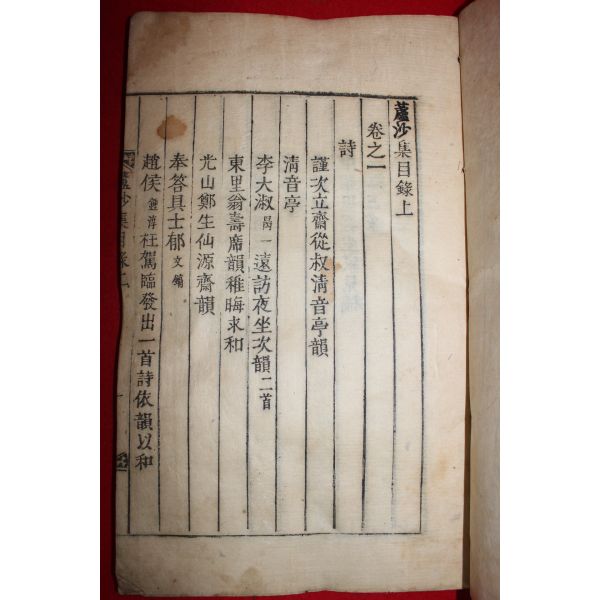 蘆沙集目錄上
卷之一
詩
謹次立齋從叔淸音亭韻
淸音亭
李大淑 一遠訪夜坐次韻二首
東里翁壽席韻稚晦求和
光山鄭生仙源齋韻
奉答具士郁文
趙侯 淳枉駕臨發出一首詩依韻以和
蘆沙集目錄上